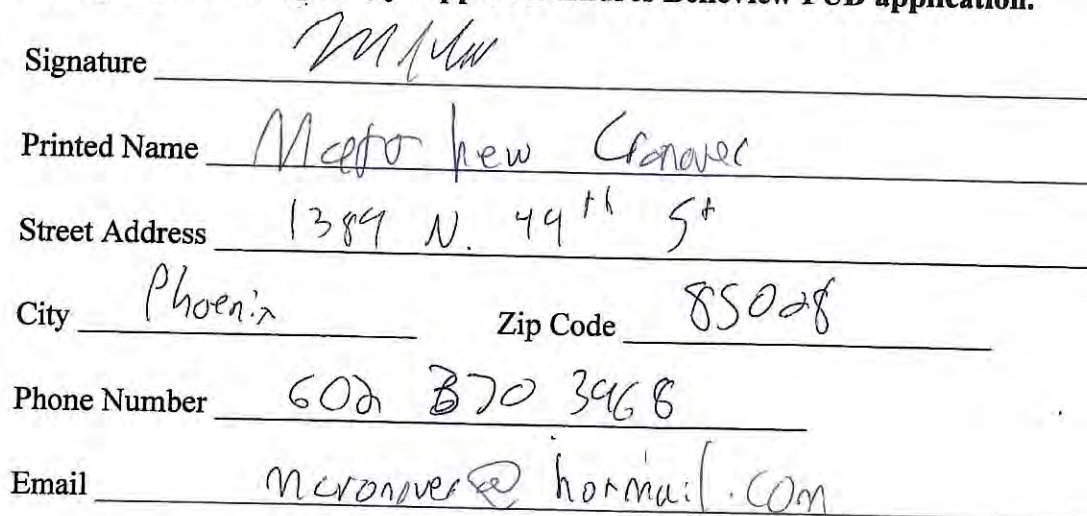 PUD application.
Signature
Printed Name Matthew Cronover
Street Address 1389 N. 44th St
City Phoenix Zip Code 85028
Phone Number 602 370 3968
Email mcronover@hotmail.com